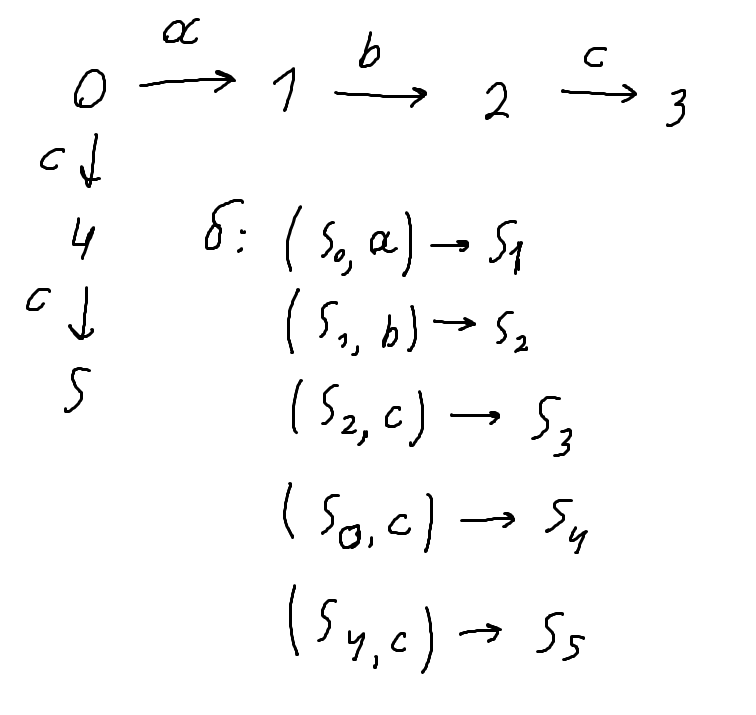 a b c
0 → 1 → 2 → 3
c ↓
4
c ↓
5
δ: (S₀, a) → S₁
(S₁, b) → S₂
(S₂, c) → S₃
(S₀, c) → S₄
(S₄, c) → S₅